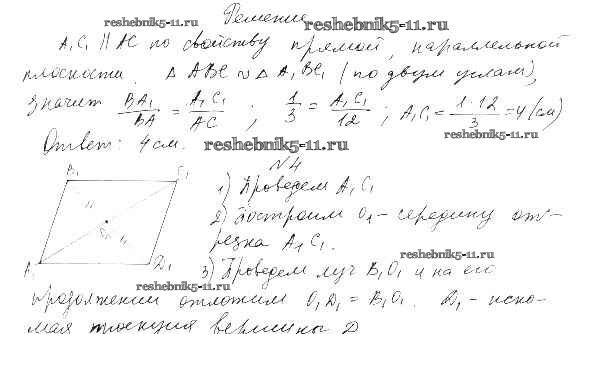 Решение
reshebnik5-11.ru reshebnik5-11.ru
A₁C₁ || AC по свойству прямой, параллельной
плоскости. Δ ABC ∾ Δ A₁BC₁ (по двум углам),
значит BA₁/BA = A₁C₁/AC ; 1/3 = A₁C₁/12 ; A₁C₁ = 1·12/3 = 4 (см)
reshebnik5-11.ru
Ответ: 4 см. reshebnik5-11.ru
N4
B₁ C₁
1) Проведем A₁C₁
2) Построим O₁ - середину от-
резка A₁C₁.
O₁
A₁ D₁
reshebnik5-11.ru
3) Проведем луч B₁O₁ и на его
reshebnik5-11.ru
продолжении отложим O₁D₁ = B₁O₁. D₁ - иско-
мая проекция вершины D
reshebnik5-11.ru